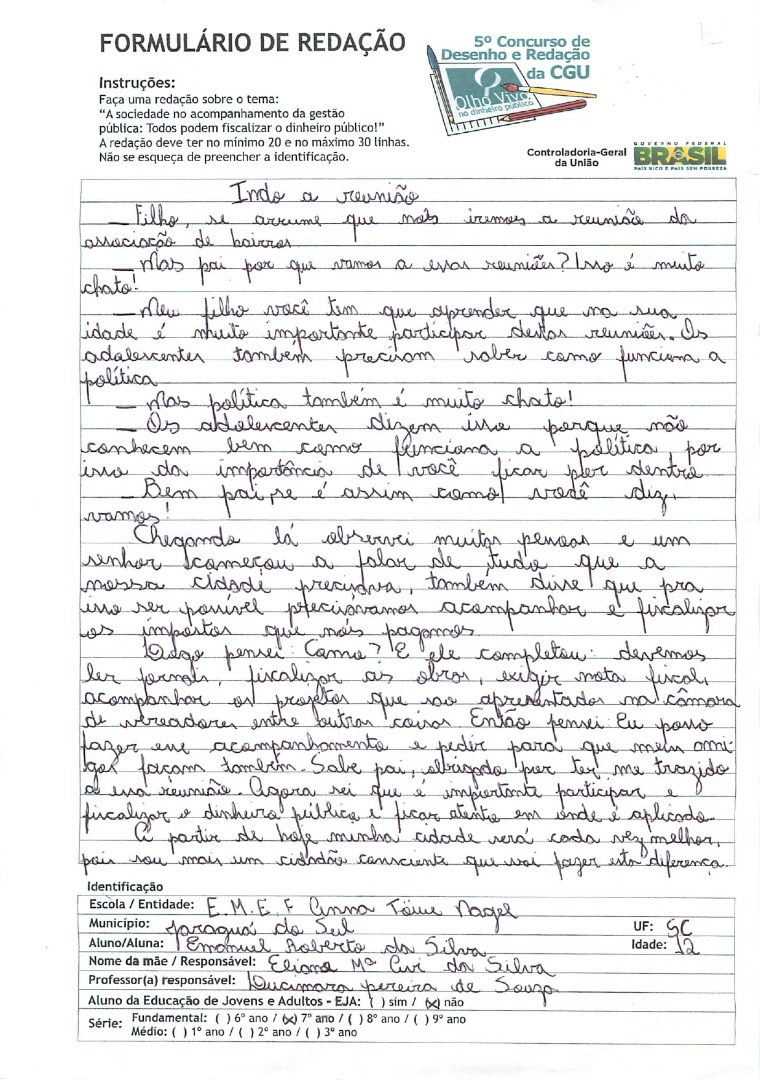 FORMULÁRIO DE REDAÇÃO
5º Concurso de
Desenho e Redação
da CGU
Olho Vivo
no dinheiro público
Instruções:
Faça uma redação sobre o tema:
“A sociedade no acompanhamento da gestão
pública: Todos podem fiscalizar o dinheiro público!”
A redação deve ter no mínimo 20 e no máximo 30 linhas.
Não se esqueça de preencher a identificação.
Controladoria-Geral
da União
GOVERNO FEDERAL
BRASIL
PAÍS RICO É PAÍS SEM POBREZA
Indo a reunião
— Filho, se arrume que nós iremos a reunião da
associação de bairros
— Mas pai por que vamos a essas reuniões? Isso é muito
chato!
— Meu filho você tem que aprender que na sua
idade é muito importante participar destas reuniões. Os
adolescentes tambem precisam saber como funciona a
política
— Mas política também é muito chato!
— Os adolescentes dizem isso porque não
conhecem bem como funciona a política, por
isso da importância de você ficar por dentro
— Bem pai, se é assim como você diz,
vamos!
Chegando lá observei muitas pessoas e um
senhor começou a falar de tudo que a
nossa cidade precisava, também disse que pra
isso ser possível precisávamos acompanhar e fiscalizar
os impostos que nós pagamos
Logo pensei: Como? E ele completou: devemos
ler jornais, fiscalizar as obras, exigir nota fiscal,
acompanhar os projetos que sao apresentados na câmara
de vereadores entre outras coisas Então pensei Eu posso
fazer esse acompanhamento e pedir para que meus ami-
gos façam também. Sabe pai, obrigado por ter me trazido
a essa reunião. Agora sei que é importante participar e
fiscalizar o dinheiro público e ficar atento em onde é aplicado.
A partir de hoje minha cidade será cada vez melhor,
pois sou mais um cidadão consciente que vai fazer esta diferença.
Identificação
Escola / Entidade: E.M.E.F Anna Töwe Nagel
Município: Jaraguá do Sul UF: SC
Aluno/Aluna: Emanuel Roberto da Silva Idade: 12
Nome da mãe / Responsável: Eliane Mª Civi da Silva
Professor(a) responsável: Lucimara pereira de Souza
Aluno da Educação de Jovens e Adultos - EJA: ( ) sim / (x) não
Série: Fundamental: ( ) 6º ano / (x) 7º ano / ( ) 8º ano / ( ) 9º ano
Médio: ( ) 1º ano / ( ) 2º ano / ( ) 3º ano